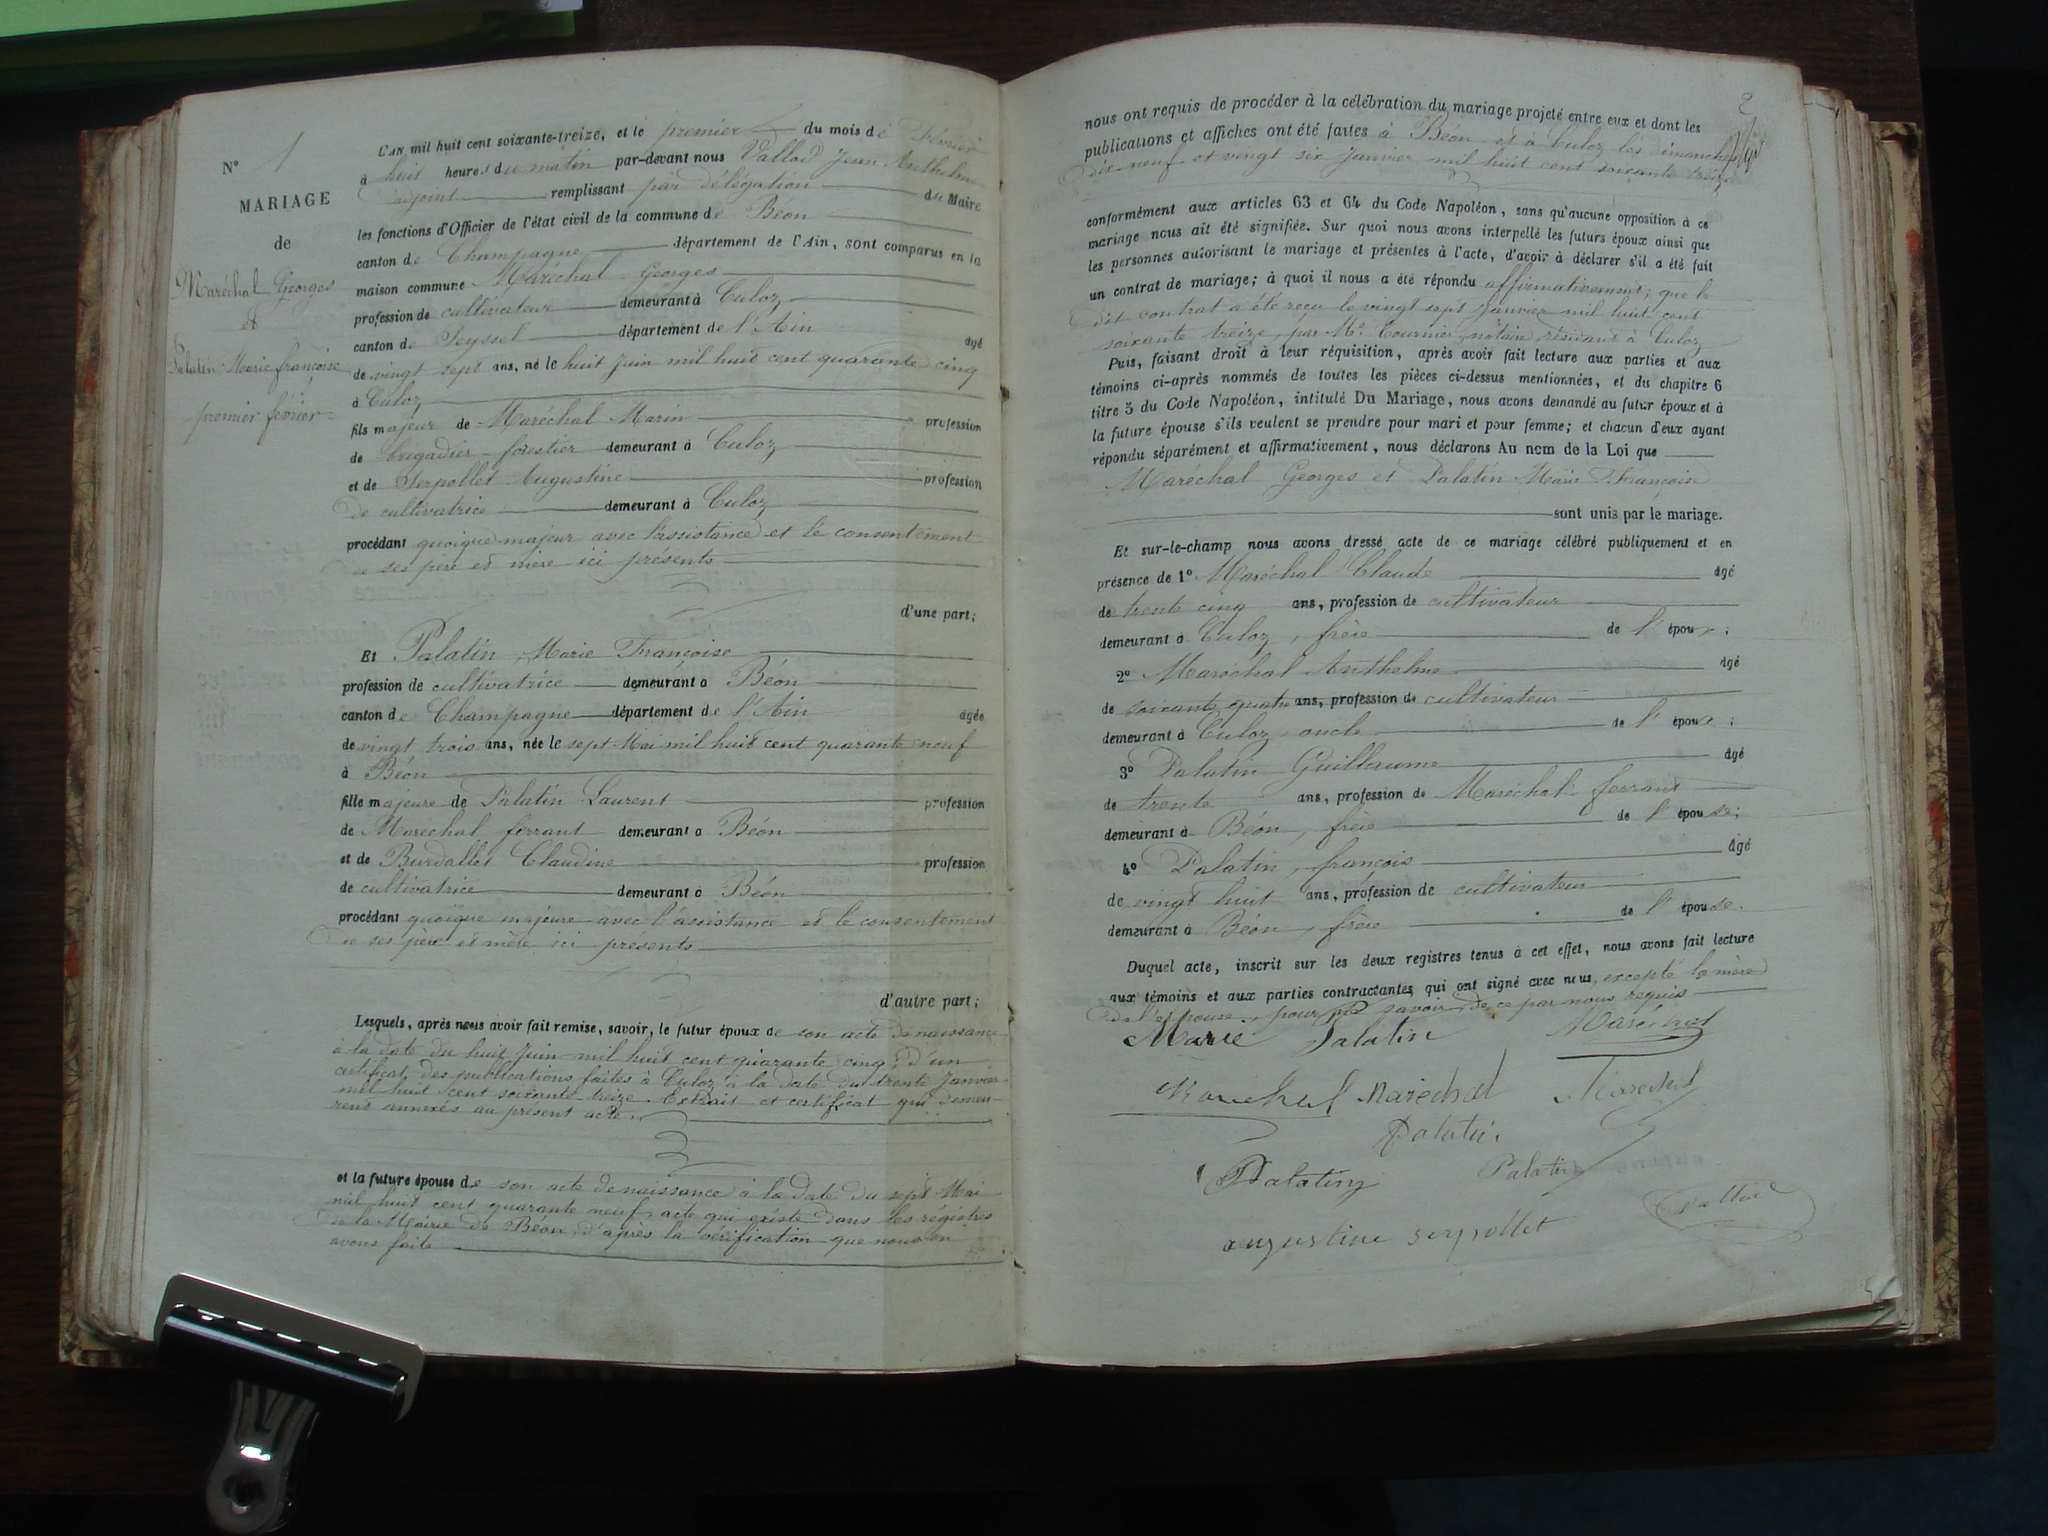 N° 1
MARIAGE
de
Maréchal Georges
et
Palatin Marie françoise
premier février
L'AN mil huit cent soixante-treize, et le premier du mois de Février
à huit heures du matin par-devant nous Vallod Jean Anthelme
adjoint remplissant par délégation du Maire
les fonctions d'Officier de l'état civil de la commune de Béon
canton de Champagne département de l'Ain, sont comparus en la
maison commune Maréchal Georges
profession de cultivateur demeurant à Culoz
canton de Seyssel département de l'Ain âgé
de vingt sept ans, né le huit Juin mil huit cent quarante cinq
à Culoz
fils majeur de Maréchal Marin profession
de brigadier forestier demeurant à Culoz
et de Serpollet Augustine profession
de cultivatrice demeurant à Culoz
procédant quoique majeur avec l'assistance et le consentement
de ses père et mère ici présents
d'une part;
Et Palatin Marie Françoise
profession de cultivatrice demeurant à Béon
canton de Champagne département de l'Ain âgée
de vingt trois ans, née le sept Mai mil huit cent quarante neuf
à Béon
fille majeure de Palatin Laurent profession
de Maréchal ferrant demeurant à Béon
et de Burdallet Claudine profession
de cultivatrice demeurant à Béon
procédant quoique majeure avec l'assistance et le consentement
de ses père et mère ici présents
d'autre part;
Lesquels, après nous avoir fait remise, savoir, le futur époux de son acte de naissance
à la date du huit Juin mil huit cent quarante cinq; d'un
certificat des publications faites à Culoz à la date du trente Janvier
mil huit cent soixante treize. Extrait et certificat qui demeu-
rent annexés au présent acte.
et la future épouse de son acte de naissance à la date du sept Mai
mil huit cent quarante neuf, acte qui existe dans les régistres
de la Mairie de Béon, d'après la vérification que nous en
avons faite
2
nous ont requis de procéder à la célébration du mariage projeté entre eux et dont les
publications et affiches ont été faites à Béon et à Culoz les dimanches
dix neuf et vingt six Janvier mil huit cent soixante treize
conformément aux articles 63 et 64 du Code Napoléon, sans qu'aucune opposition à ce
mariage nous ait été signifiée. Sur quoi nous avons interpellé les futurs époux ainsi que
les personnes autorisant le mariage et présentes à l'acte, d'avoir à déclarer s'il a été fait
un contrat de mariage; à quoi il nous a été répondu affirmativement; que le
dit contrat a été reçu le vingt sept Janvier mil huit cent
soixante treize, par Me Tournier, notaire, résidant à Culoz
Puis, faisant droit à leur réquisition, après avoir fait lecture aux parties et aux
témoins ci-après nommés de toutes les pièces ci-dessus mentionnées, et du chapitre 6
titre 5 du Code Napoléon, intitulé Du Mariage, nous avons demandé au futur époux et à
la future épouse s'ils veulent se prendre pour mari et pour femme; et chacun d'eux ayant
répondu séparément et affirmativement, nous déclarons Au nom de la Loi que
Maréchal Georges et Palatin Marie Françoise
sont unis par le mariage.
Et sur-le-champ nous avons dressé acte de ce mariage célébré publiquement et en
présence de 1° Maréchal Claude âgé
de trente cinq ans, profession de cultivateur
demeurant à Culoz, frère de l'époux;
2° Maréchal Anthelme âgé
de soixante quatre ans, profession de cultivateur
demeurant à Culoz oncle de l'époux;
3° Palatin Guillaume âgé
de trente ans, profession de Maréchal ferrant
demeurant à Béon, frère de l'épouse;
4° Palatin, françois âgé
de vingt huit ans, profession de cultivateur
demeurant à Béon, frère de l'épouse.
Duquel acte, inscrit sur les deux registres tenus à cet effet, nous avons fait lecture
aux témoins et aux parties contractantes qui ont signé avec nous, excepté la mère
de l'épouse, pour ne savoir, de ce par nous requis
Marie Palatin Maréchal
Marechal Maréchal Marechal
Palatin
Palatin Palatin
augustine serpollet Vallod